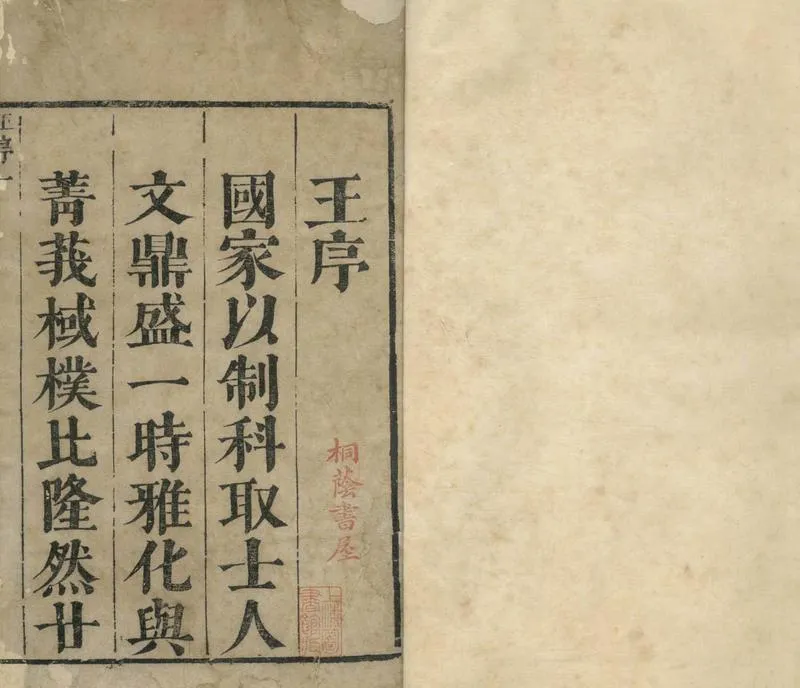 王序
桐蔭書屋
國家以制科取士人
文鼎盛一時雅化與
菁莪棫樸比隆然廿
王序一